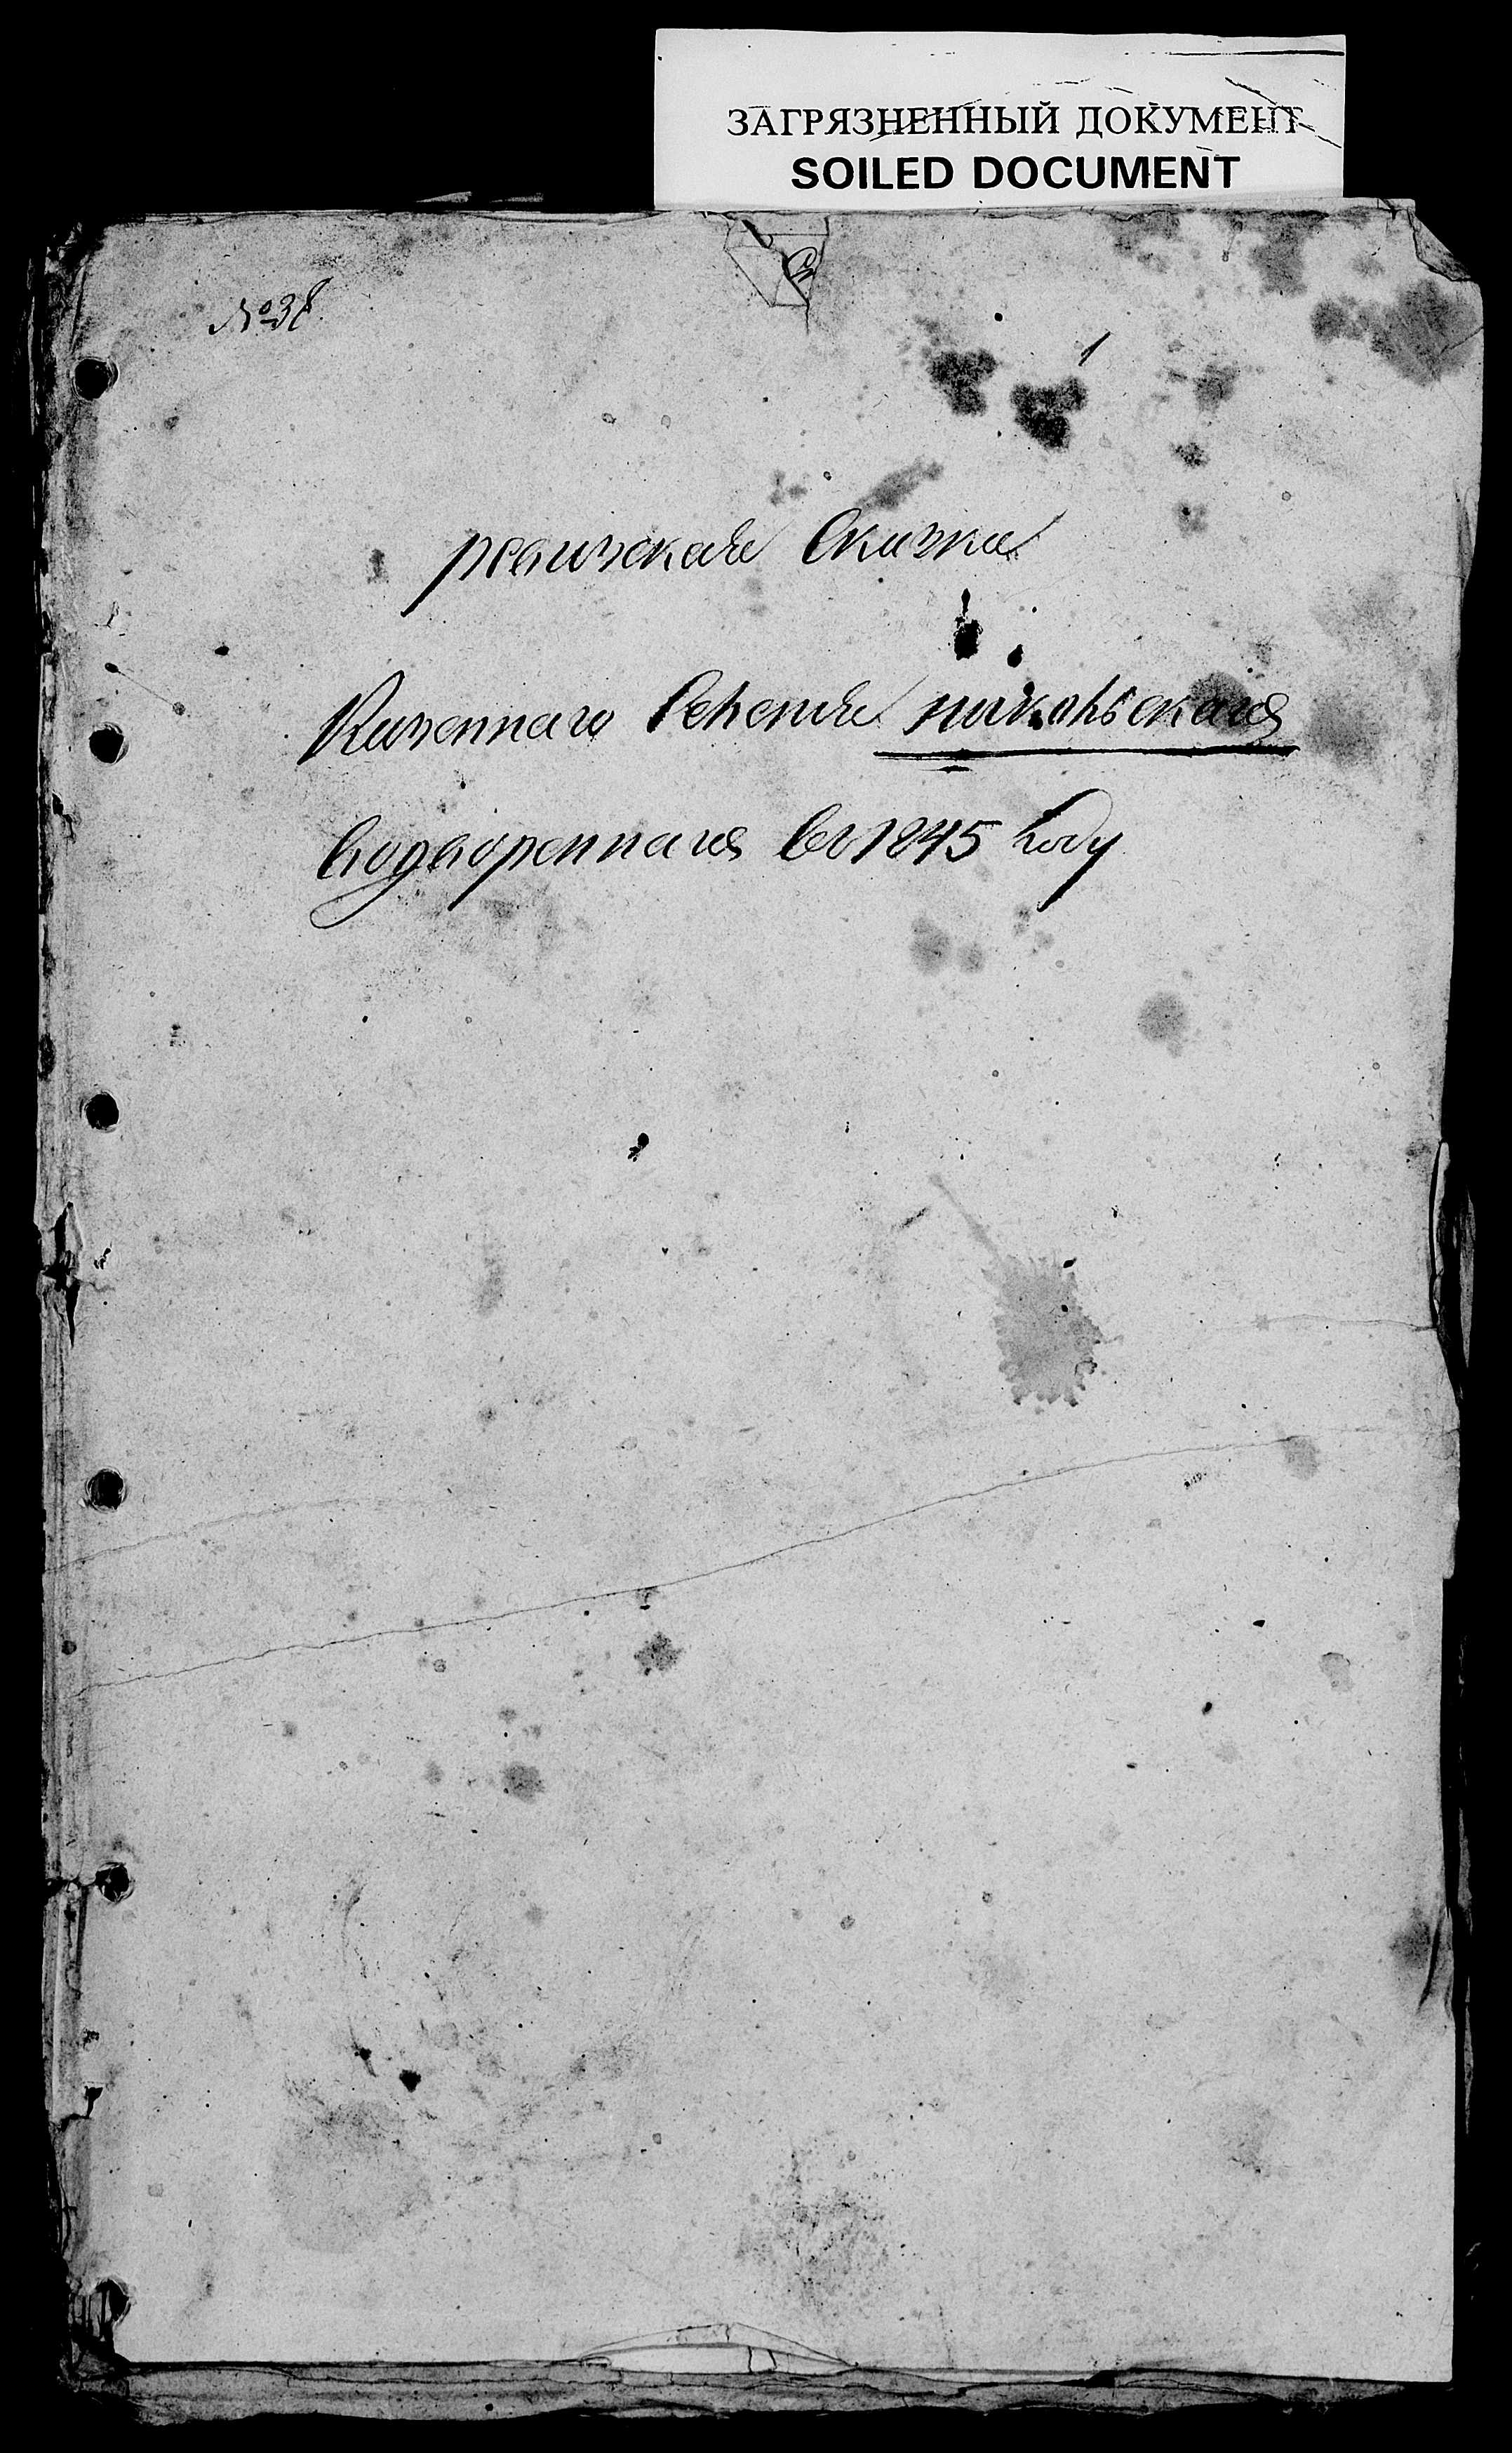 ЗАГРЯЗНЕННЫЙ ДОКУМЕНТ
SOILED DOCUMENT
№38
1
ревизская Сказка
Казеннаго Селения никольскаго
водвореннаго въ 1845 году